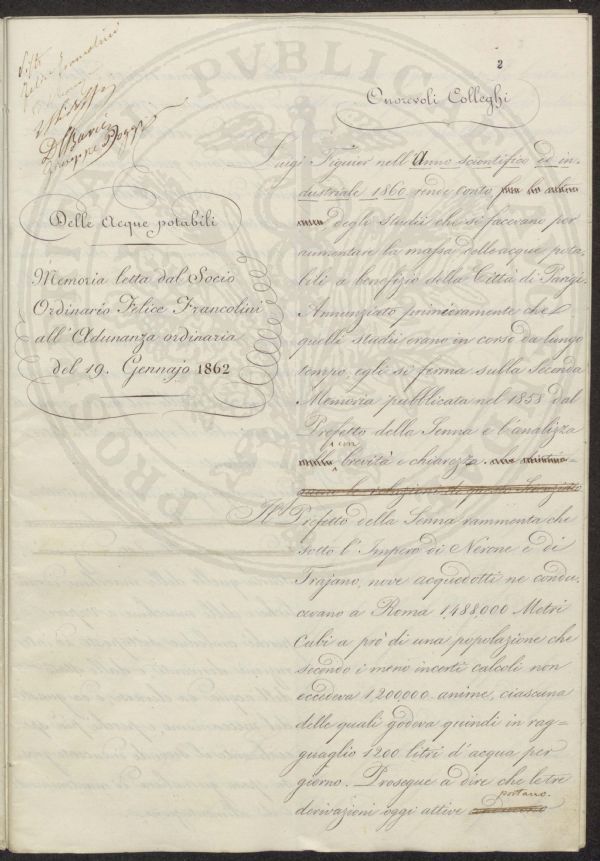 2
Onorevoli Colleghi
Delle Acque potabili
Memoria letta dal Socio
Ordinario Felice Francolini
all'Adunanza ordinaria
del 19. Gennajo 1862
Luigi Figuier nell'Anno scientifico ed in-
dustriale 1860 rende conto
degli Studii che si facevano per
aumentare la massa delle acque pota-
bili a benefizio della Città di Parigi.
Annunziato primieramente che
quelli studii erano in corso da lungo
tempo egli si ferma sulla Seconda
Memoria pubblicata nel 1858 dal
Prefetto della Senna e l'analizza
con
brevità e chiarezza.
Il Prefetto della Senna rammenta che
sotto l'Impero di Nerone e di
Trajano, nove acquedotti ne condu-
cevano a Roma 1,488,000 Metri
Cubi a prò di una popolazione che
secondo i meno incerti calcoli non
eccedeva 1200000 anime, ciascuna
delle quali godeva quindi in rag=
guaglio 1200 litri d'acqua per
giorno. Prosegue a dire che le tre
portano
derivazioni oggi attive
PVBLICAE PRO